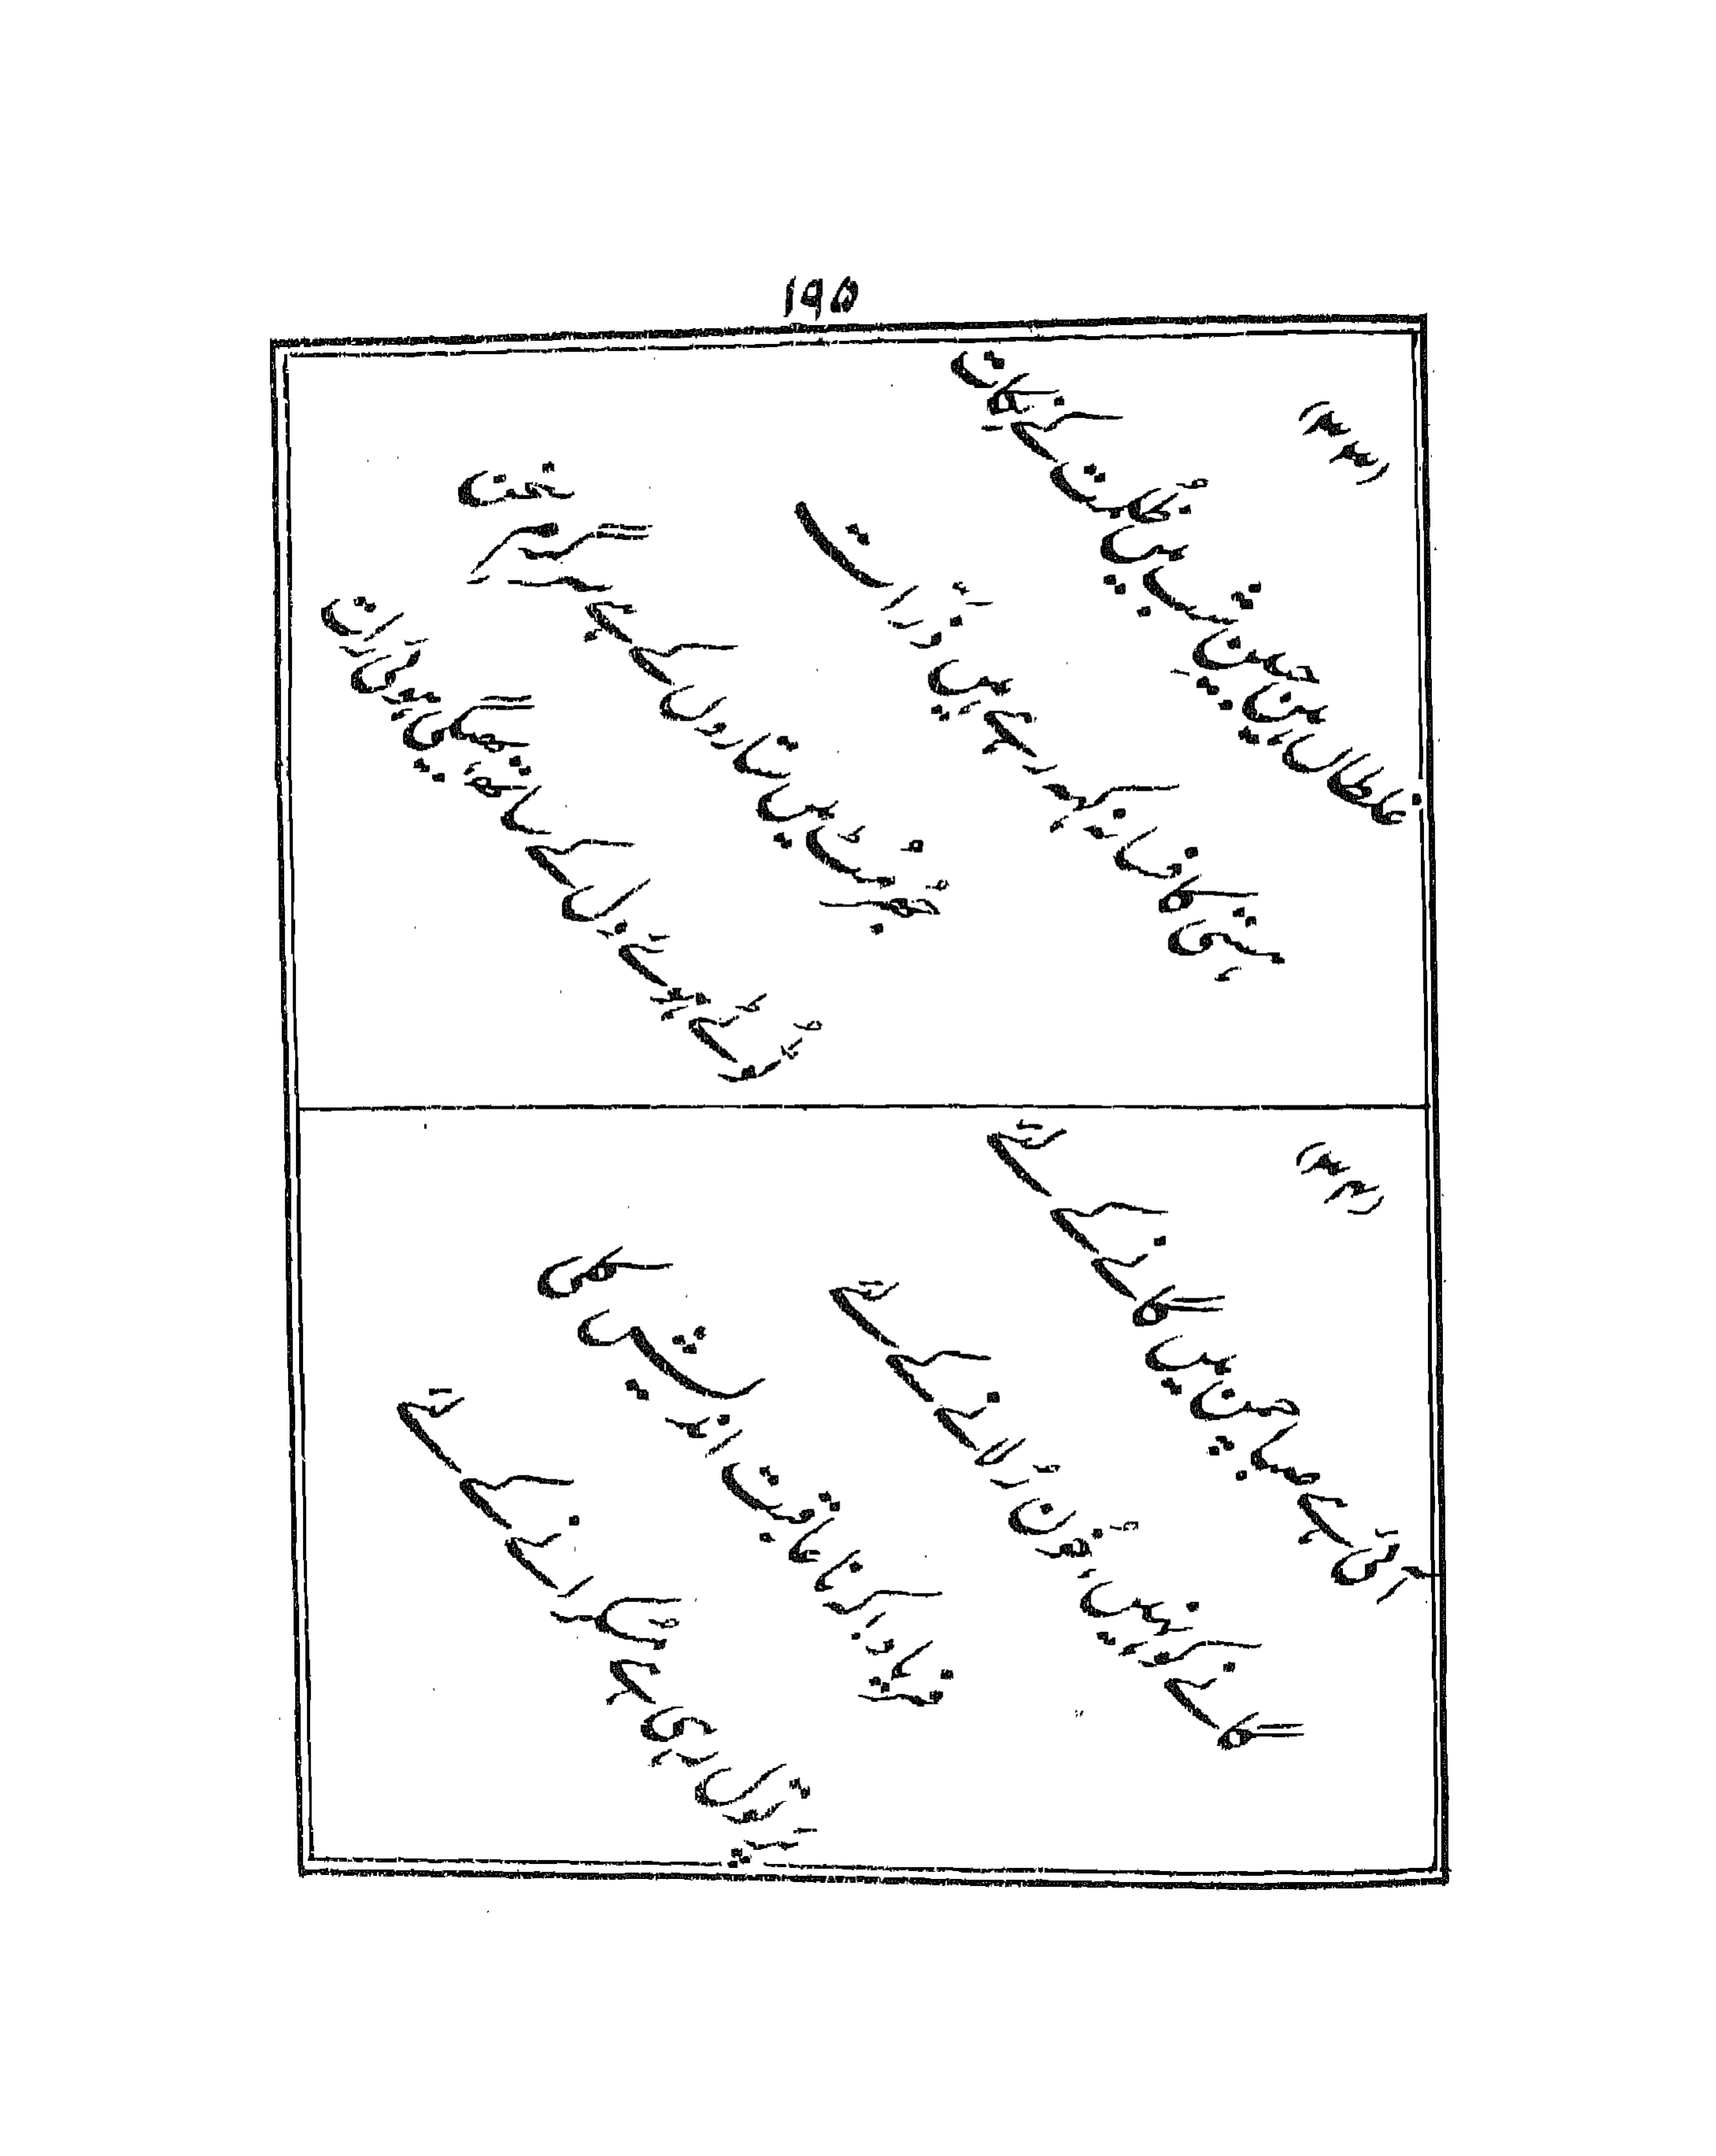 ۱۹۵
(۳۳)
غلطاں ہیں جبینِ شب میں ظلمت کے نکات
ہستی کا فسانہ کہہ رہے ہیں ذرّات
جھرمٹ میں ستاروں کے ہے سرگرمِ سخن
ٹوٹے ہوئے دل کے ساتھ بھیگی ہوئی رات
(۳۴)
آئی ہے صبا چمن میں گانے کے لئے
گانے کو نہیں، خون رُلانے کے لئے
فریاد! کہ ناعاقبت اندیش کلی
پر تول رہی ہے مسکرانے کے لئے